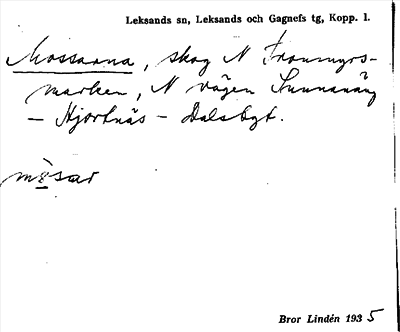 Leksands sn, Leksands och Gagnefs tg, Kopp. l.
Mossarna, skog N Tronmyrs-
marken, N vägen Sunnanäng
– Hjortnäs – Dalsbyt.
mǫ̀sar
Bror Lindén 1935